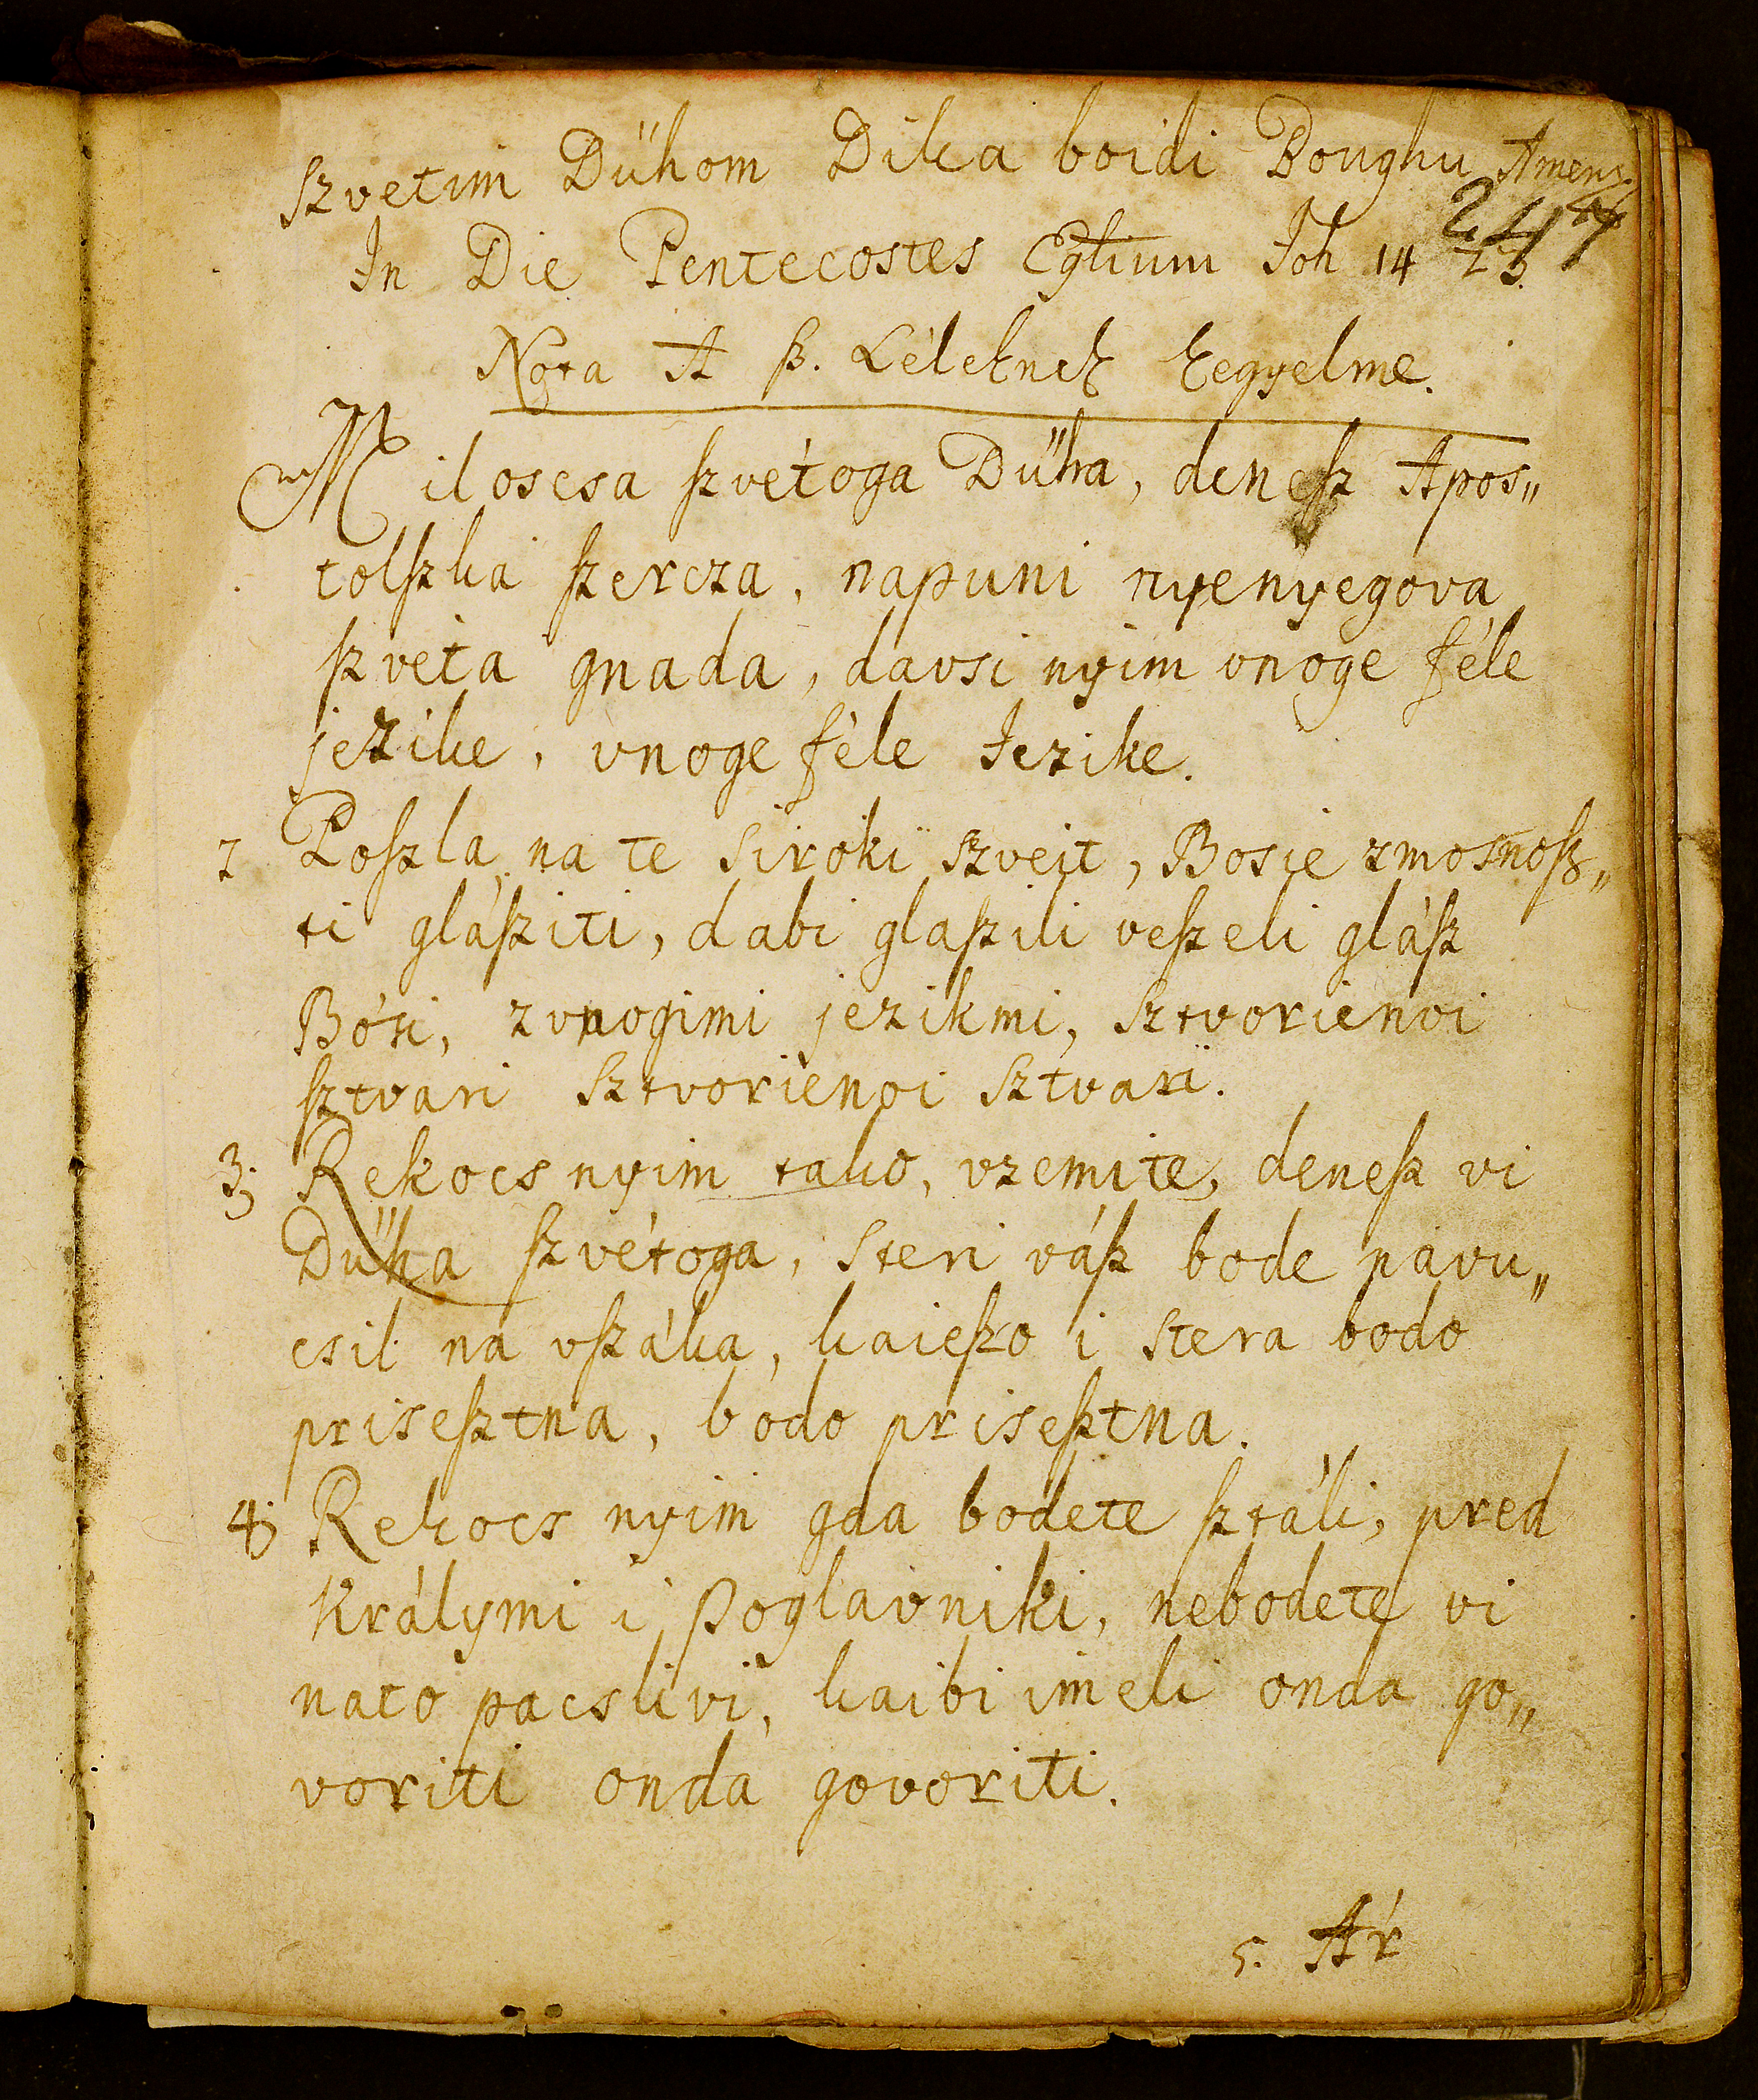 szvetim Dühom Dika boidi Boughu Amen
247
In Die Pentecostes Eglium Joh 14 23.
Nota A ſz. Léleknek kegyelme.
Miloscsa ſzvétoga Dűha, deneſz Apos„
tolſzka ſzercza, napuni nyenyegova
ſzveta gnada, davsi nyim vnoge féle
jezike, vnoge féle Jezike.
2 Poſzla na te siroki szveit, Bosie zmosnoſz„
ti gláſziti, dabi glaſzili veſzeli gláſz
Bósi, zvnogimi jezikmi, sztvorienoi
ſztvari sztvorienoi sztvari.
3; Rekocs nyim tako, vzemite, deneſz vi
Dűha ſzvétoga, steri váſz bode navu„
csil na vſzáka, kaieſzo i stera bodo
priseſztna, bodo priseſztna.
4; Rekocs nyim gda bodete ſztáli, pred
Králymi i poglavniki, nebodete vi
nato pacslivi, kaibi imeli onda go„
voriti onda govoriti.
5. Ár